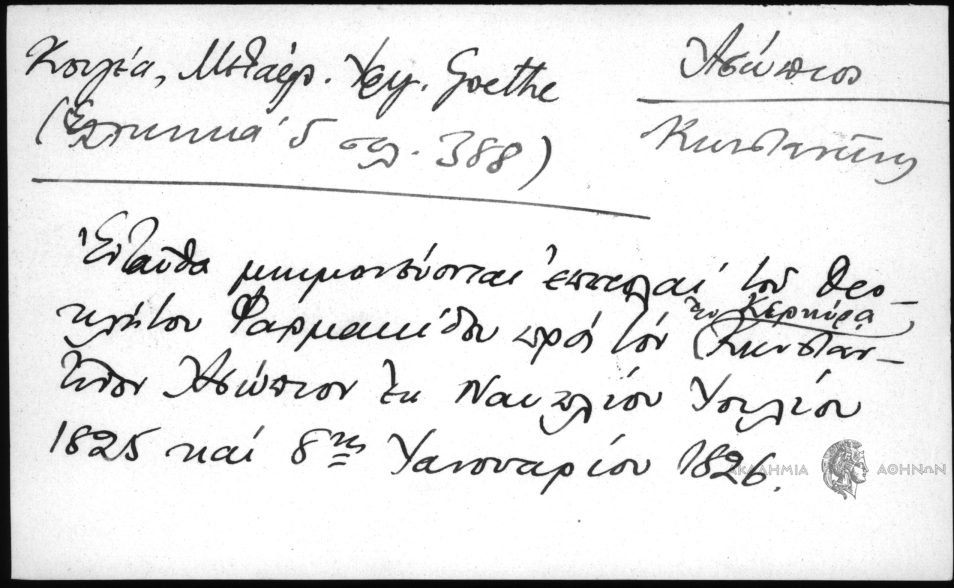 Κουγέα, Μεταφρ. Goethe
(Ελληνικά 5 σελ. 388)
Ἀσώπιος
Κωνσταντῖνος
Ἐνταῦθα μνημονεύονται ἐπιστολαί τοῦ Θεο-
κλήτου Φαρμακίδου πρός τόν ἐν Κερκύρᾳ Κωνσταν-
τῖνον Ἀσώπιον ἐκ Ναυπλίου Ἰουλίου
1825 καί 8ης Ἰανουαρίου 1826.
ΑΚΑΔΗΜΙΑ ΑΘΗΝΩΝ